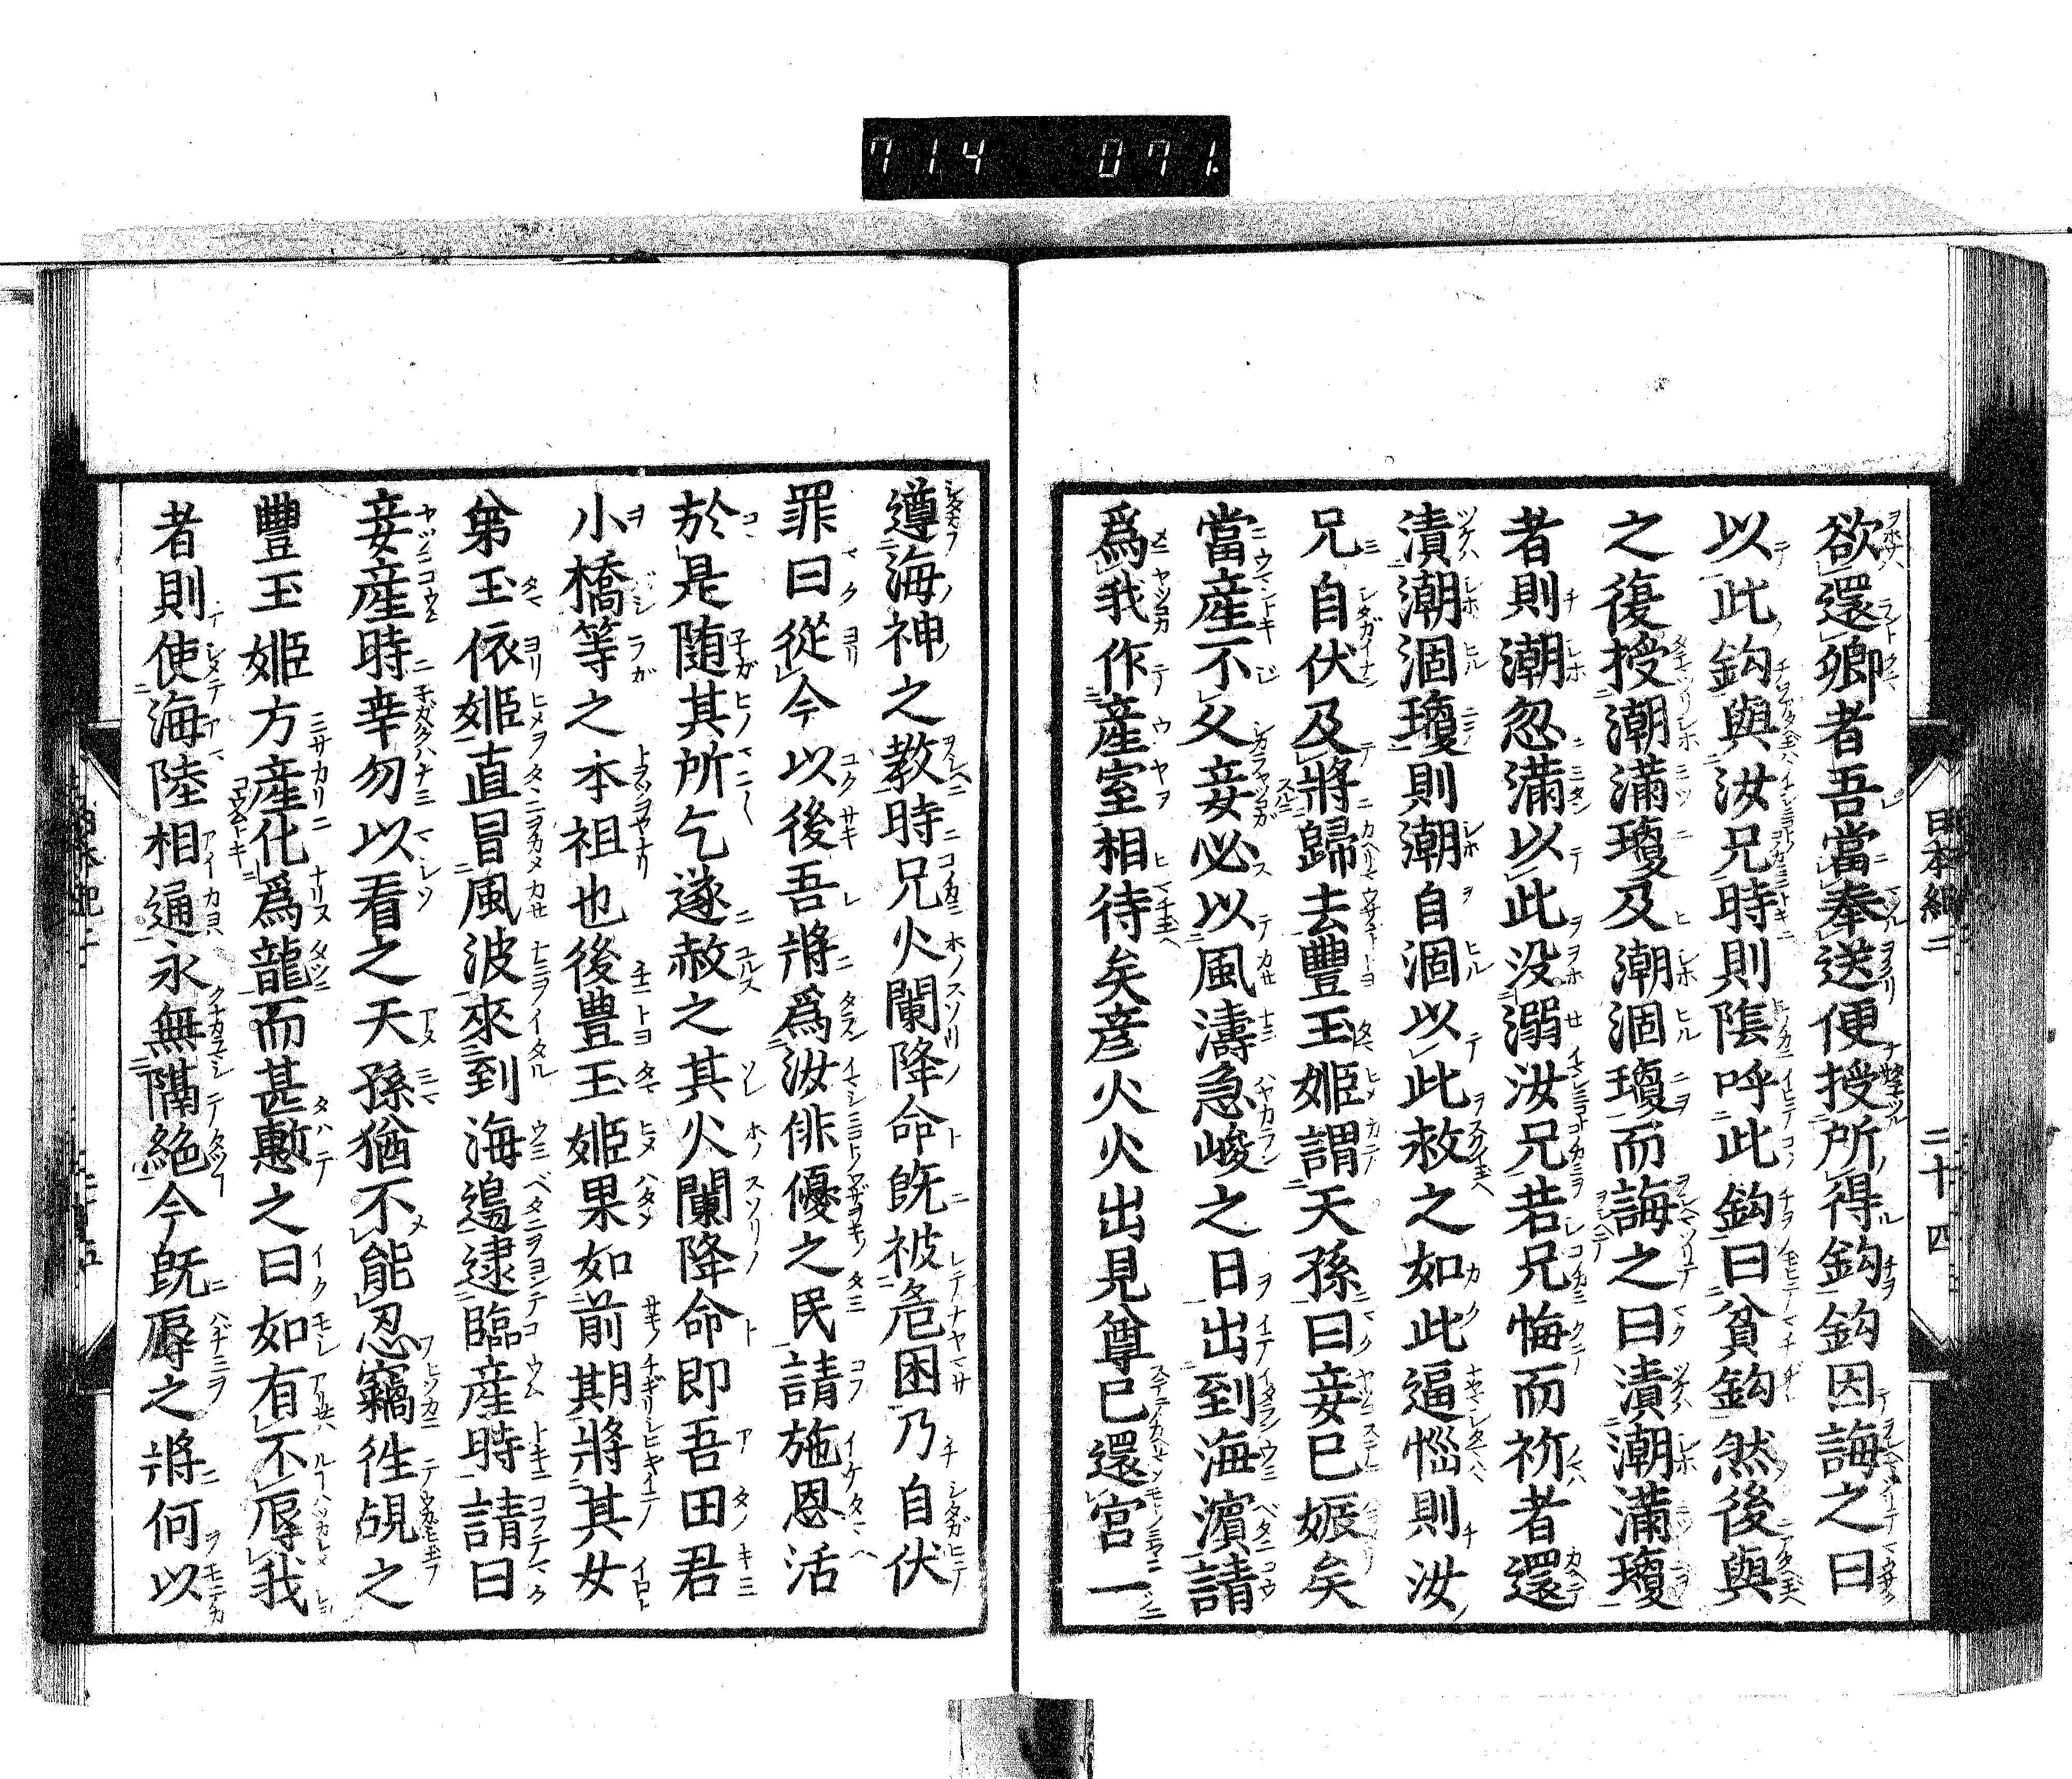 714 071
日本紀二 二十四
欲還鄉者吾當奉送便授所得鈎鈎因誨之曰
以此鈎與汝兄時則陰呼此鈎曰貧鈎然後與
之復授潮滿瓊及潮涸瓊而誨之曰漬潮滿瓊
者則潮忽滿以此没溺汝兄若兄悔而祈者還
漬潮涸瓊則潮自涸以此救之如此逼惱則汝
兄自伏及將歸去豐玉姬謂天孫曰妾已娠矣
當産不久妾必以風濤急峻之日出到海濱請
爲我作産室相待矣彦火火出見尊已還宮一
遵海神之教時兄火闌降命既被危困乃自伏
罪曰從今以後吾將爲汝俳優之民請施恩活
於是随其所乞遂赦之其火闌降命即吾田君
小橋等之本祖也後豊玉姬果如前期將其女
弟玉依姬直冒風波來到海邊逮臨産時請曰
妾産時幸勿以看之天孫猶不能忍竊徃覘之
豐玉姬方産化爲龍而甚慙之曰如有不辱我
者則使海陸相通永無隔絶今既辱之將何以